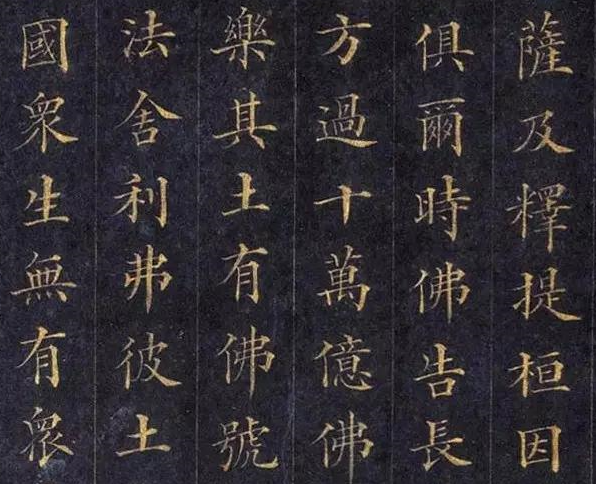 薩及釋提桓因
俱爾時佛告長
方過十萬億佛
樂其土有佛號
法舍利弗彼土
國衆生無有衆